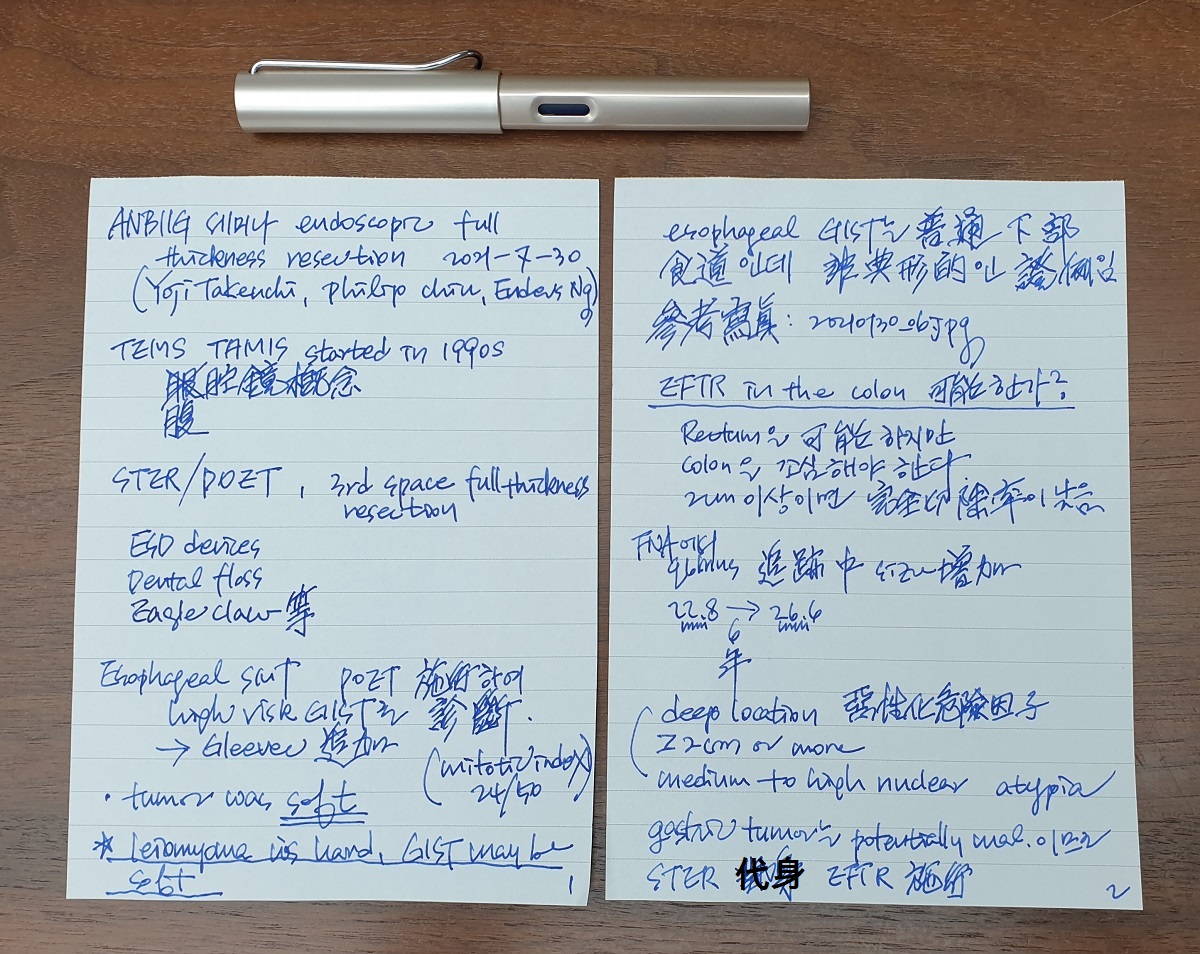 ANBIIG 세미나 endoscopic full
thickness resection 2021-7-30
(Yoji Takeuchi, Philip Chiu, Enders Ng)
TEMS TAMIS started in 1990s
腔鏡概念
腹
STER/POET, 3rd space full thickness
resection
ESD devices
Dental floss
Eagle claw 等
Esophageal SMT POET 施行하여
high risk GIST로 診斷.
→ Gleevec 追加
(mitotic index
24/50)
· tumor was soft
* leiomyoma is hard, GIST may be
soft
1
esophageal GIST는 普通 下部
食道인데 非典形的인 證例임
參考寫眞: 20210730_06.jpg
EFTR in the colon 可能한가?
Rectum은 可能하지만
colon은 조심해야 한다
2cm 이상이면 完全切除率이 낮음
FNA에서
追跡中 size 增加
22.8 → 26.6
mm mm
6
年
deep location 惡性化危險因子
2cm or more
medium to high nuclear atypia
gastric tumor는 potentially mal.이므로
STER 代身 EFTR 施行
2